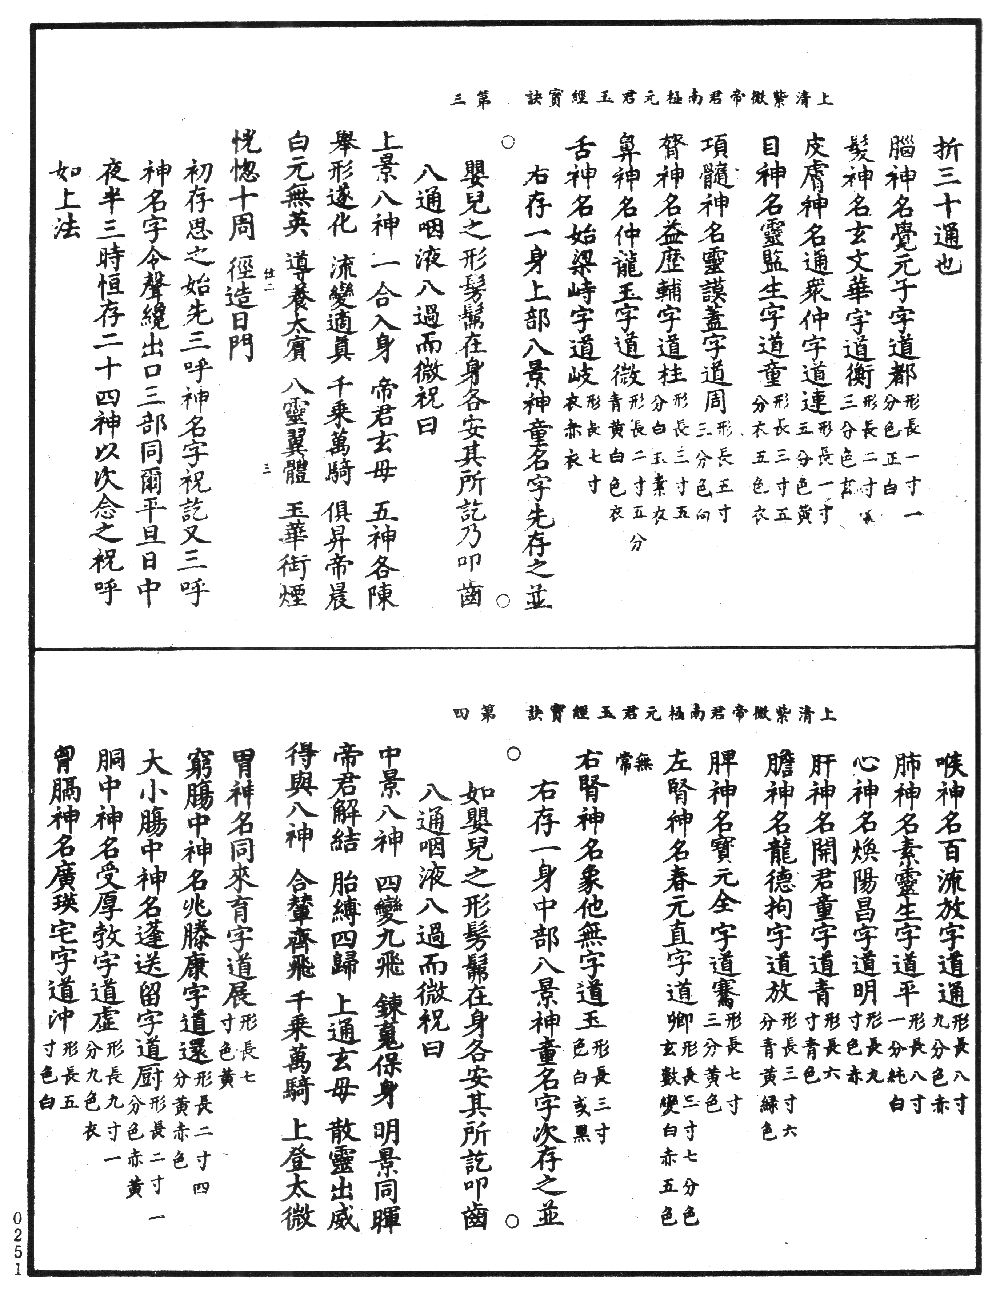 上清紫微帝君南極元君玉經寶訣　第三
折三十通也
腦神名覺元子字道都形長一寸一分色正白
髮神名玄文華字道衡形長二寸一分色玄
皮膚神名通衆仲字道連形長一寸五分色黃
目神名靈監生字道童形長三寸五分衣五色衣
項髓神名靈謨蓋字道周形長五寸三分色白
膂神名益歷輔字道柱形長三寸五分白玉素衣
鼻神名仲龍玉字道微形長二寸五分青黃白色衣
舌神名始梁峙字道岐形長七寸衣赤衣
右存一身上部八景神童名字先存之並
○
嬰兒之形髣髴在身各安其所訖乃叩齒
八通咽液八過而微祝曰
上景八神　一合入身　帝君玄母　五神各陳
舉形遂化　流變適真　千乘萬騎　俱昇帝晨
白元無英　導養太賓　八靈翼體　玉華銜煙
恍惚十周　徑造日門
初存思之始先三呼神名字祝訖又三呼
神名字令聲纔出口三部同爾平旦日中
夜半三時恒存二十四神以次念之祝呼
如上法
上清紫微帝君南極元君玉經寶訣　第四
喉神名百流放字道通形長八寸九分色赤
肺神名素靈生字道平形長八寸一分純白
心神名煥陽昌字道明形長九寸色赤
肝神名開君童字道青形長六寸青色
膽神名龍德拘字道放形長三寸六分青黃綠色
脾神名寶元全字道騫形長七寸三分黃色
左腎神名春元直字道卿形長三寸七分色玄數變白赤五色
無常
右腎神名象他無字道玉形長三寸色白或黑
右存一身中部八景神童名字次存之並
○
如嬰兒之形髣髴在身各安其所訖叩齒
八通咽液八過而微祝曰
中景八神　四變九飛　鍊䰟保身　明景同暉
帝君解結　胎縛四歸　上通玄母　散靈出威
得與八神　合輦齊飛　千乘萬騎　上登太微
胃神名同來育字道展形長七寸色黃
窮腸中神名兆滕康字道還形長二寸四分黃赤色
大小腸中神名蓬送留字道厨形長二寸一分色赤黃
胴中神名受厚敦字道虛形長九寸一分九色衣
胷膈神名廣瑛宅字道沖形長五寸色白
0251